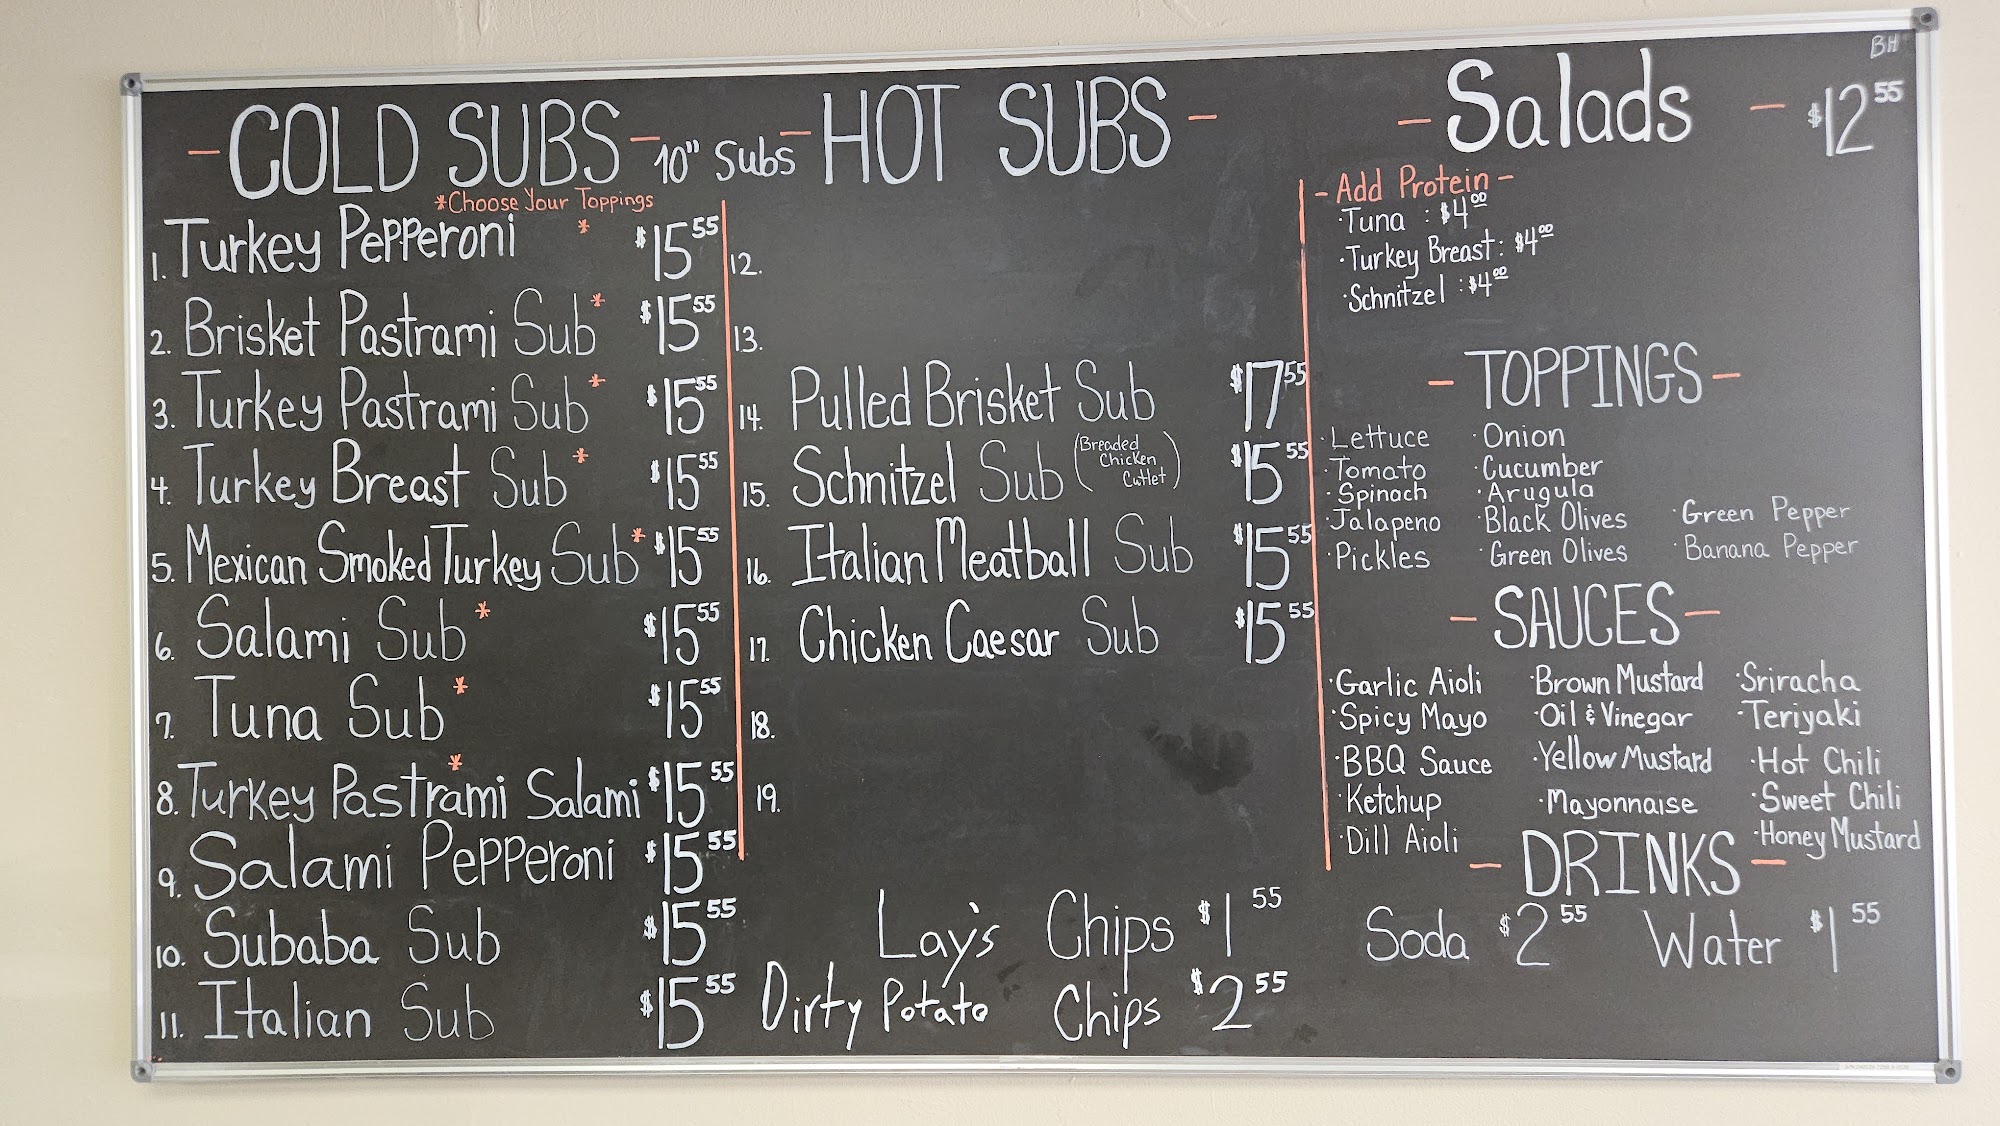 BH
- COLD SUBS -
10" Subs
*Choose Your Toppings
1. Turkey Pepperoni * $15.55
2. Brisket Pastrami Sub* $15.55
3. Turkey Pastrami Sub* $15.55
4. Turkey Breast Sub* $15.55
5. Mexican Smoked Turkey Sub* $15.55
6. Salami Sub* $15.55
7. Tuna Sub* $15.55
8. Turkey Pastrami Salami * $15.55
9. Salami Pepperoni $15.55
10. Subaba Sub $15.55
11. Italian Sub $15.55
- HOT SUBS -
12.
13.
14. Pulled Brisket Sub $17.55
15. Schnitzel Sub (Breaded Chicken Cutlet) $15.55
16. Italian Meatball Sub $15.55
17. Chicken Caesar Sub $15.55
18.
19.
Lay's Chips $1.55
Dirty Potato Chips $2.55
- Salads - $12.55
- Add Protein -
·Tuna : $4.00
·Turkey Breast: $4.00
·Schnitzel : $4.00
- TOPPINGS -
·Lettuce ·Onion
·Tomato ·Cucumber
·Spinach ·Arugula
·Jalapeno ·Black Olives ·Green Pepper
·Pickles ·Green Olives ·Banana Pepper
- SAUCES -
·Garlic Aioli ·Brown Mustard ·Sriracha
·Spicy Mayo ·Oil & Vinegar ·Teriyaki
·BBQ Sauce ·Yellow Mustard ·Hot Chili
·Ketchup ·Mayonnaise ·Sweet Chili
·Dill Aioli ·Honey Mustard
- DRINKS -
Soda $2.55 Water $1.55